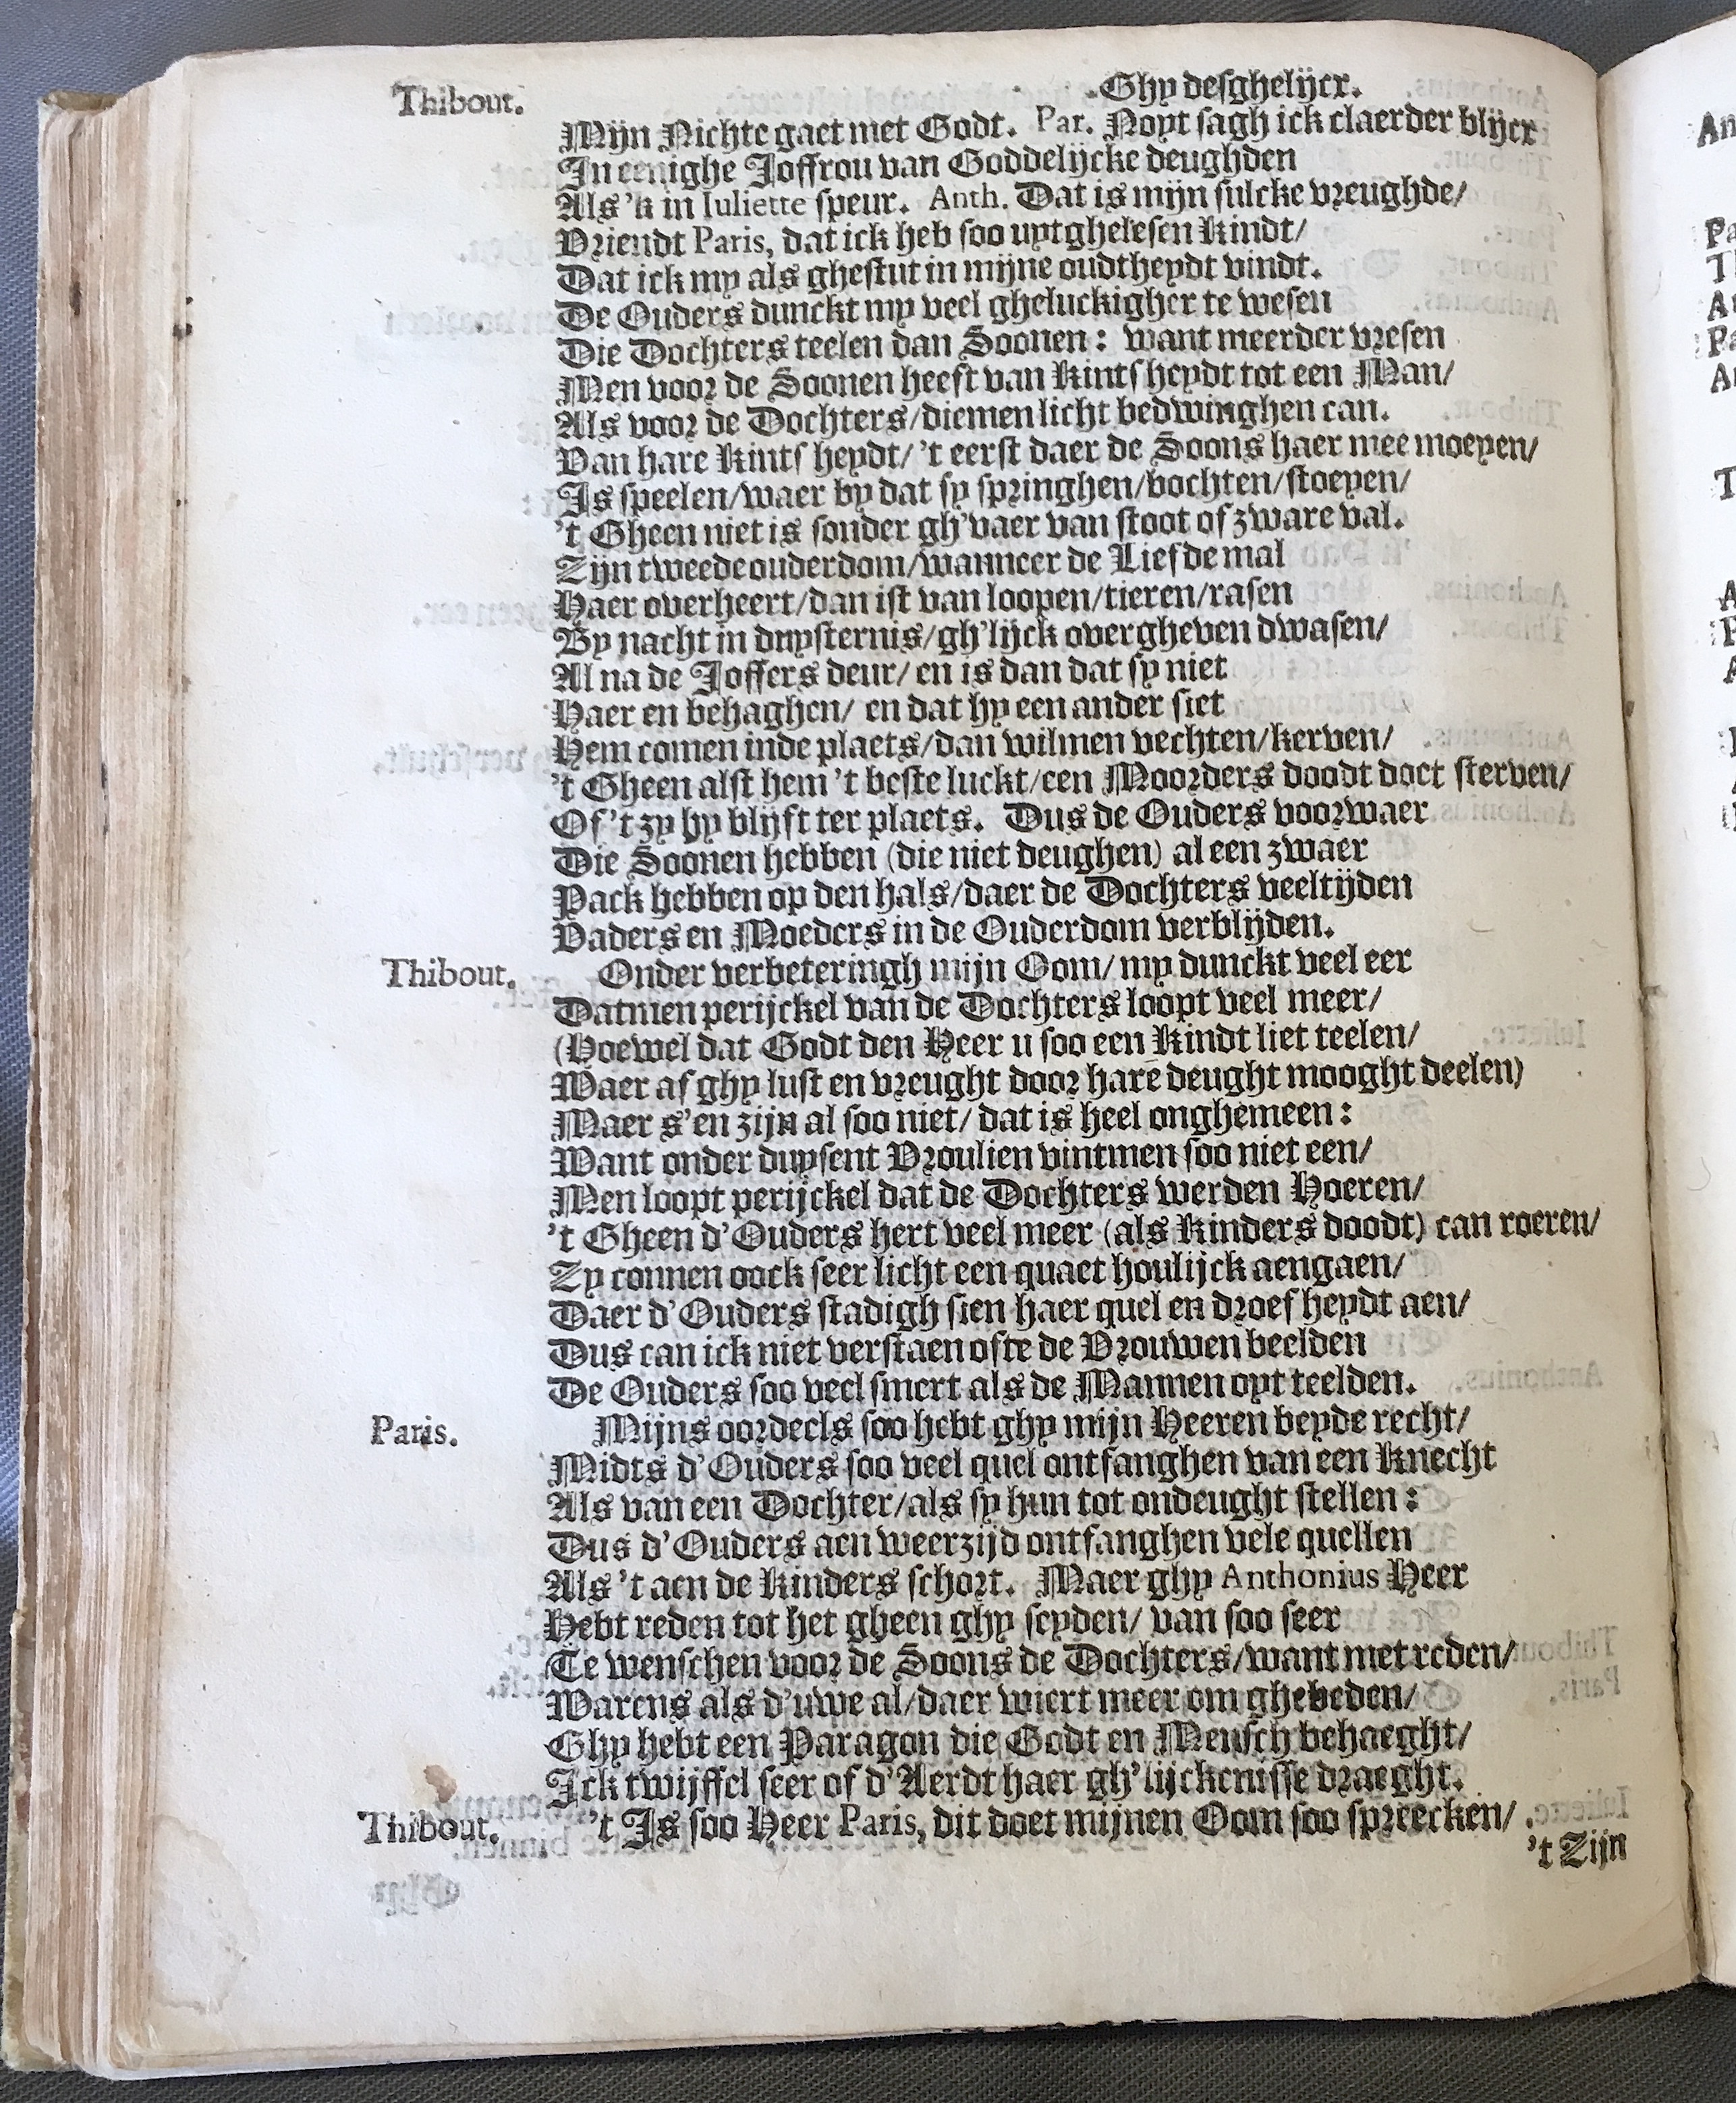 Thibout. Ghy desghelijcx.
Mijn Nichte gaet met Godt. Par. Noyt sagh ick claerder blijcx
In eenighe Joffrou van Goddelijcke deughden
Als 'k in Iuliette speur. Anth. Dat is mijn sulcke vreughde/
Vriendt Paris, dat ick heb soo uytghelesen Kindt/
Dat ick my als ghestut in mijne oudtheydt vindt.
De Ouders dunckt my veel gheluckigher te wesen
Die Dochters teelen dan Soonen: want meerder vresen
Men voor de Soonen heeft van Kintsheydt tot een Man/
Als voor de Dochters/diemen licht bedwinghen can.
Van hare Kintsheydt/ 't eerst daer de Soons haer mee moeyen/
Is speelen/waer by dat sy springhen/vochten/stoeyen/
't Gheen niet is sonder gh'vaer van stoot of zware val.
Zijn tweede ouderdom/wanneer de Liefde mal
Haer overheert/dan ist van loopen/tieren/rasen
By nacht in duysternis/gh'lijck overgheven dwasen/
Al na de Joffers deur/ en is dan dat sy niet
Haer en behaghen/ en dat hy een ander siet
Hem comen inde plaets/dan wilmen vechten/kerven/
't Gheen alst hem 't beste luckt/een Moorders doodt doet sterven/
Of 't zy hy blijft ter plaets. Dus de Ouders voorwaer
Die Soonen hebben (die niet deughen) al een zwaer
Pack hebben op den hals/daer de Dochters veeltijden
Vaders en Moeders in de Ouderdom verblijden.
Thibout. Onder verbeteringh mijn Oom/ my dunckt veel eer
Datmen perijckel van de Dochters loopt veel meer/
(Hoewel dat Godt den Heer u soo een Kindt liet teelen/
Waer af ghy lust en vreught door hare deught mooght deelen)
Maer s'en zijn al soo niet/ dat is heel onghemeen:
Want onder duysent Vroulien vintmen soo niet een/
Men loopt perijckel dat de Dochters werden Hoeren/
't Gheen d'Ouders hert veel meer (als Kinders doodt) can roeren/
Zy connen oock seer licht een quaet houlijck aengaen/
Daer d'Ouders stadigh sien haer quel en droefheydt aen/
Dus can ick niet verstaen ofte de Vrouwen beelden
De Ouders soo veel smert als de Mannen oyt teelden.
Paris. Mijns oordeels soo hebt ghy mijn Heeren beyde recht/
Midts d'Ouders soo veel quel ontfanghen van een Knecht
Als van een Dochter/als sy hun tot ondeught stellen:
Dus d'Ouders aen weerzijd ontfanghen vele quellen
Als 't aen de Kinders schort. Maer ghy Anthonius Heer
Hebt reden tot het gheen ghy seyden/ van soo seer
Te wenschen voor de Soons de Dochters/want met reden/
Warens als d'uwe al/daer wiert meer om ghebeden/
Ghy hebt een Paragon die Godt en Mensch behaeght/
Ick twijffel seer of d'Aerdt haer gh'lijckenisse draeght.
Thibout. 't Is soo Heer Paris, dit doet mijnen Oom soo spreecken/
't Zijn